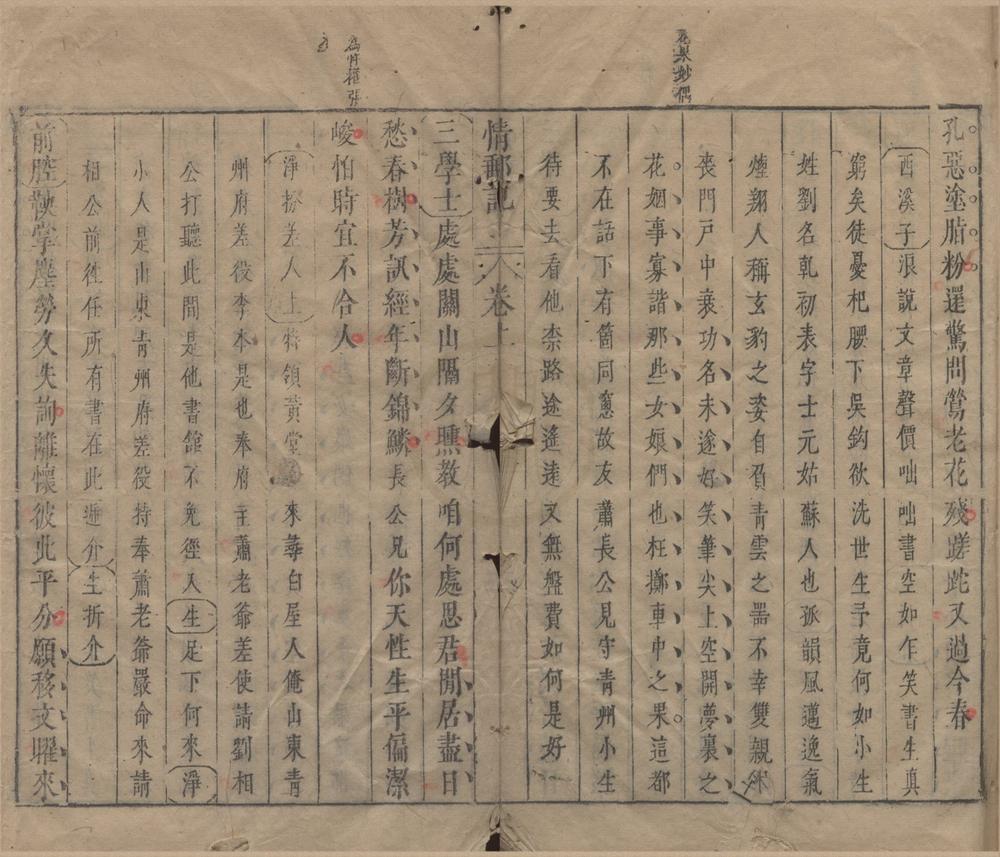 花果妙偶
孔惡塗脂粉還驚問鶯老花殘蹉跎又過今春
西溪子浪說文章聲價咄咄書空如乍笑書生真
窮矣徒憂杞腰下吳鈎欲洗世生予竟何如小生
姓劉名乾初表字士元姑蘇人也孤韻風邁逸氣
煙翔人稱玄豹之姿自負青雲之器不幸雙親
喪門戶中衰功名未遂好笑筆尖上空開夢裏之
花姻事寡諧那些女娘們也枉擲車中之果這都
不在話下有箇同窻故友蕭長公見守青州小生
待要去看他柰路途遙遠又無盤費如何是好
情郵記 卷上
三學士處處關山隔夕曛教咱何處思君閒居盡日
愁春樹芳訊經年斷錦鱗長公兄你天性生平偏潔
峻怕時宜不合人
淨扮差人上特領黃堂來尋白屋人俺山東青
州府差役李本是也奉府主蕭老爺差使請劉相
公打聽此間是他書館不免徑入生足下何來淨
小人是山東青州府差役持奉蕭老爺嚴命來請
相公前徃任所有書在此遞介生折介
前腔鞅掌塵勞久失詢離懷彼此平分願移文曜來